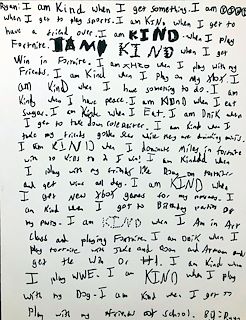 Ryan: I am Kind when I get something. I am
when I get to play sports. I am KIND when I get to
have a friend over. I am KIND when I play
Fortnite. I AM KIND when I get
Win in Fortnite. I am when I play with my
Friends. I am Kind when I play on my Xbox. I
am Kind when I have something to do. I am
Kind when I have peace. I am KIND when I eat
Sugar. I am Kind when I Eat. I am
when I get to take down
take my friends
I am KIND when I dominate Miley in fortnite
win 10 Kills to 2 I win! I am Kinddd when
I play with my friends like Doug on fortnite
and get wins all day. I am KIND when
I get New Xbox games for my
am Kind when I get to Birthday
my Party. I am KIND when I Am in Art
Class and playing Fortnite. I am when I
Play fortnite with Jake and and
get the Win or #1. I am Kind when
I play WWE. I am KIND when I play
with my Dog. I am Kind when I get to
Play with my friends at school. By: Ryan